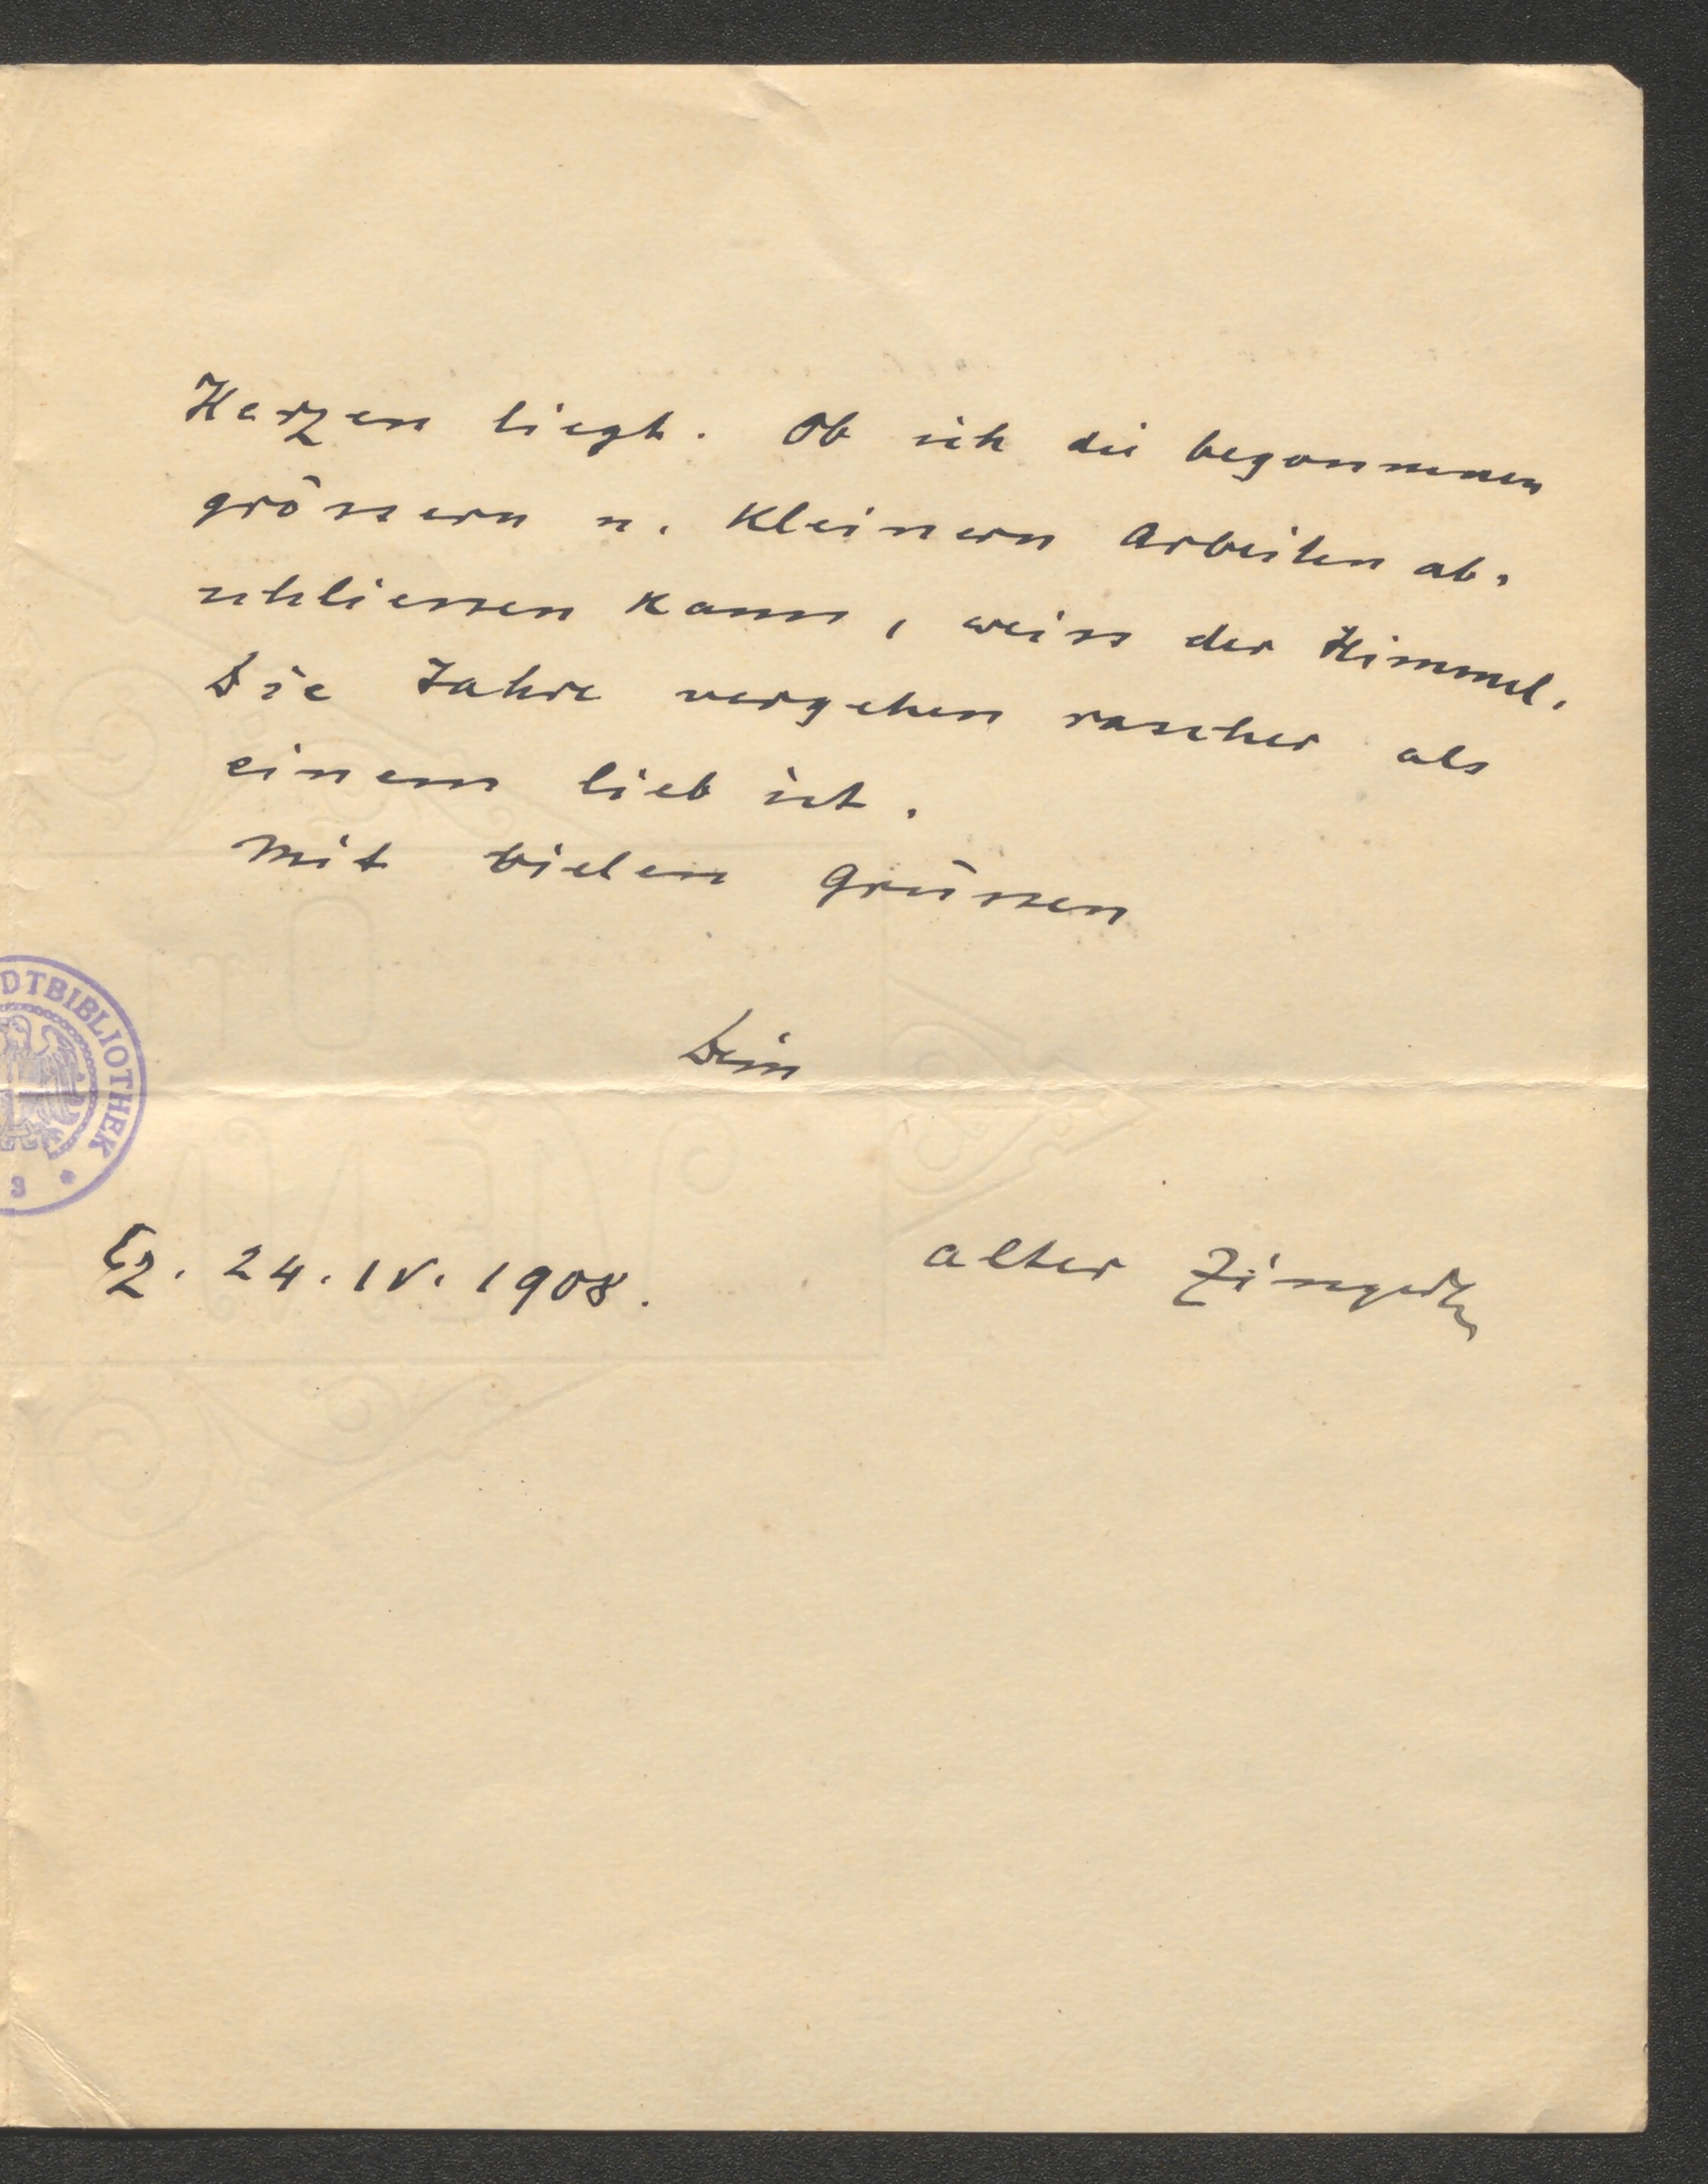 Herzen liegt. Ob ich die begonnenen
grössern u. kleinern Arbeiten ab-
schliessen kann, weiss der Himmel.
Die Jahre vergehen rascher als
einem lieb ist.
Mit vielen Grüssen
Dein
alter Zingerle
Cz. 24. IV. 1908.
DTBIBLIOTHEK